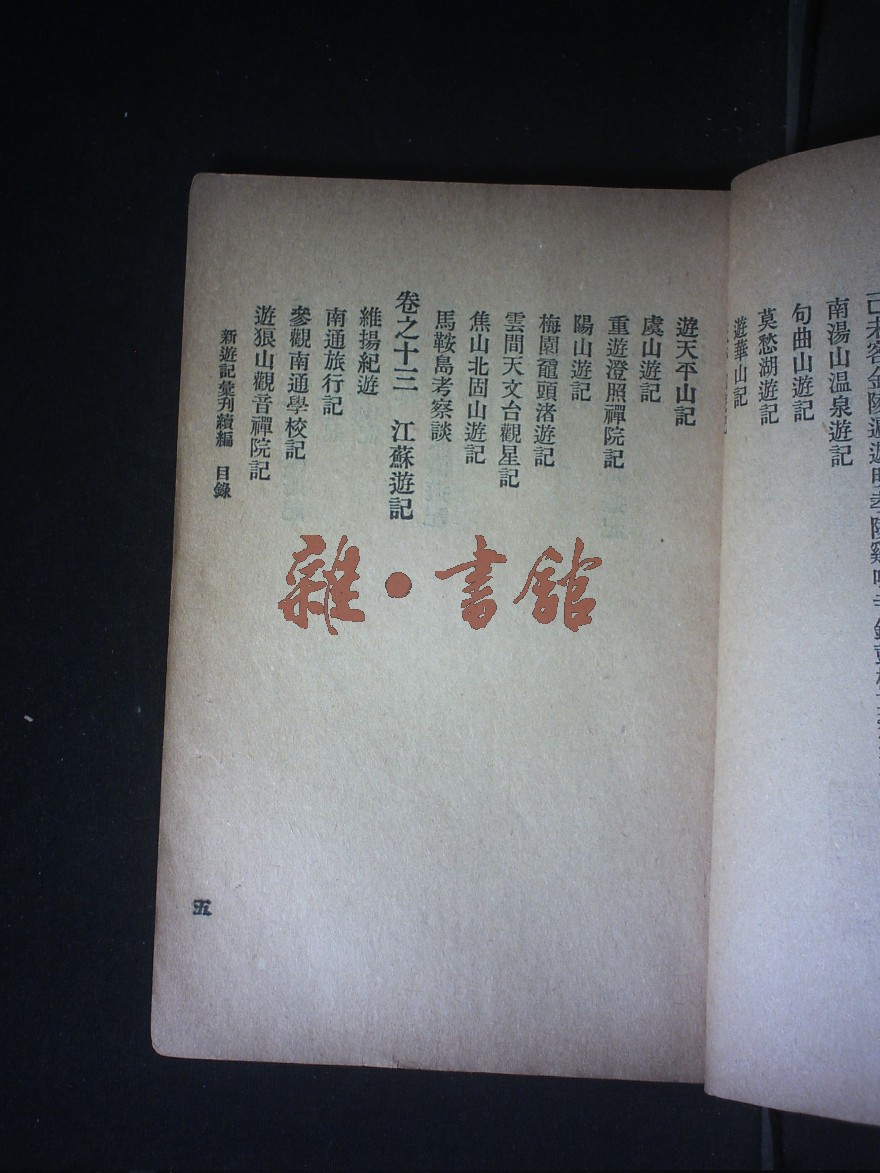 南湯山溫泉遊記
句曲山遊記
莫愁湖遊記
遊華山記
遊天平山記
虞山遊記
重遊澄照禪院記
陽山遊記
梅園黿頭渚遊記
雲間天文台觀星記
焦山北固山遊記
馬鞍島考察談
卷之十三 江蘇遊記
維揚紀遊
南通旅行記
參觀南通學校記
遊狼山觀音禪院記
新遊記彙刊續編 目錄
五
雜·書館